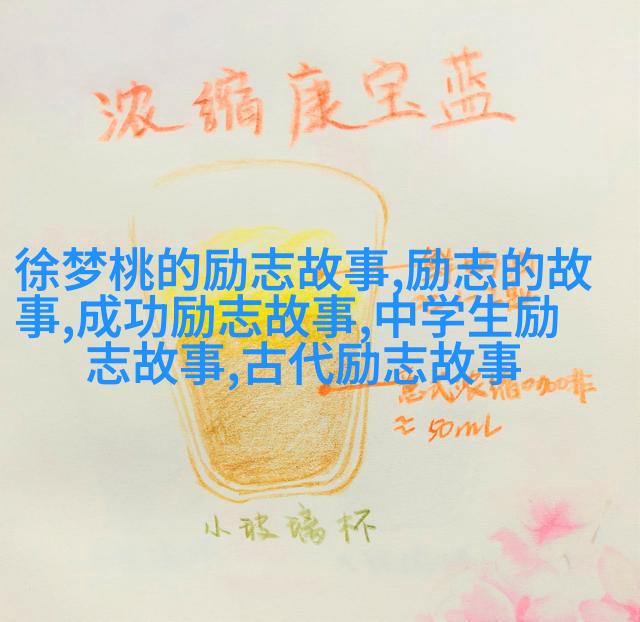 浓缩康宝蓝
徐梦桃的励志故事,励志的故
事,成功励志故事,中学生励
志故事,古代励志故事
意式浓缩咖啡
≈50mL
小玻璃杯